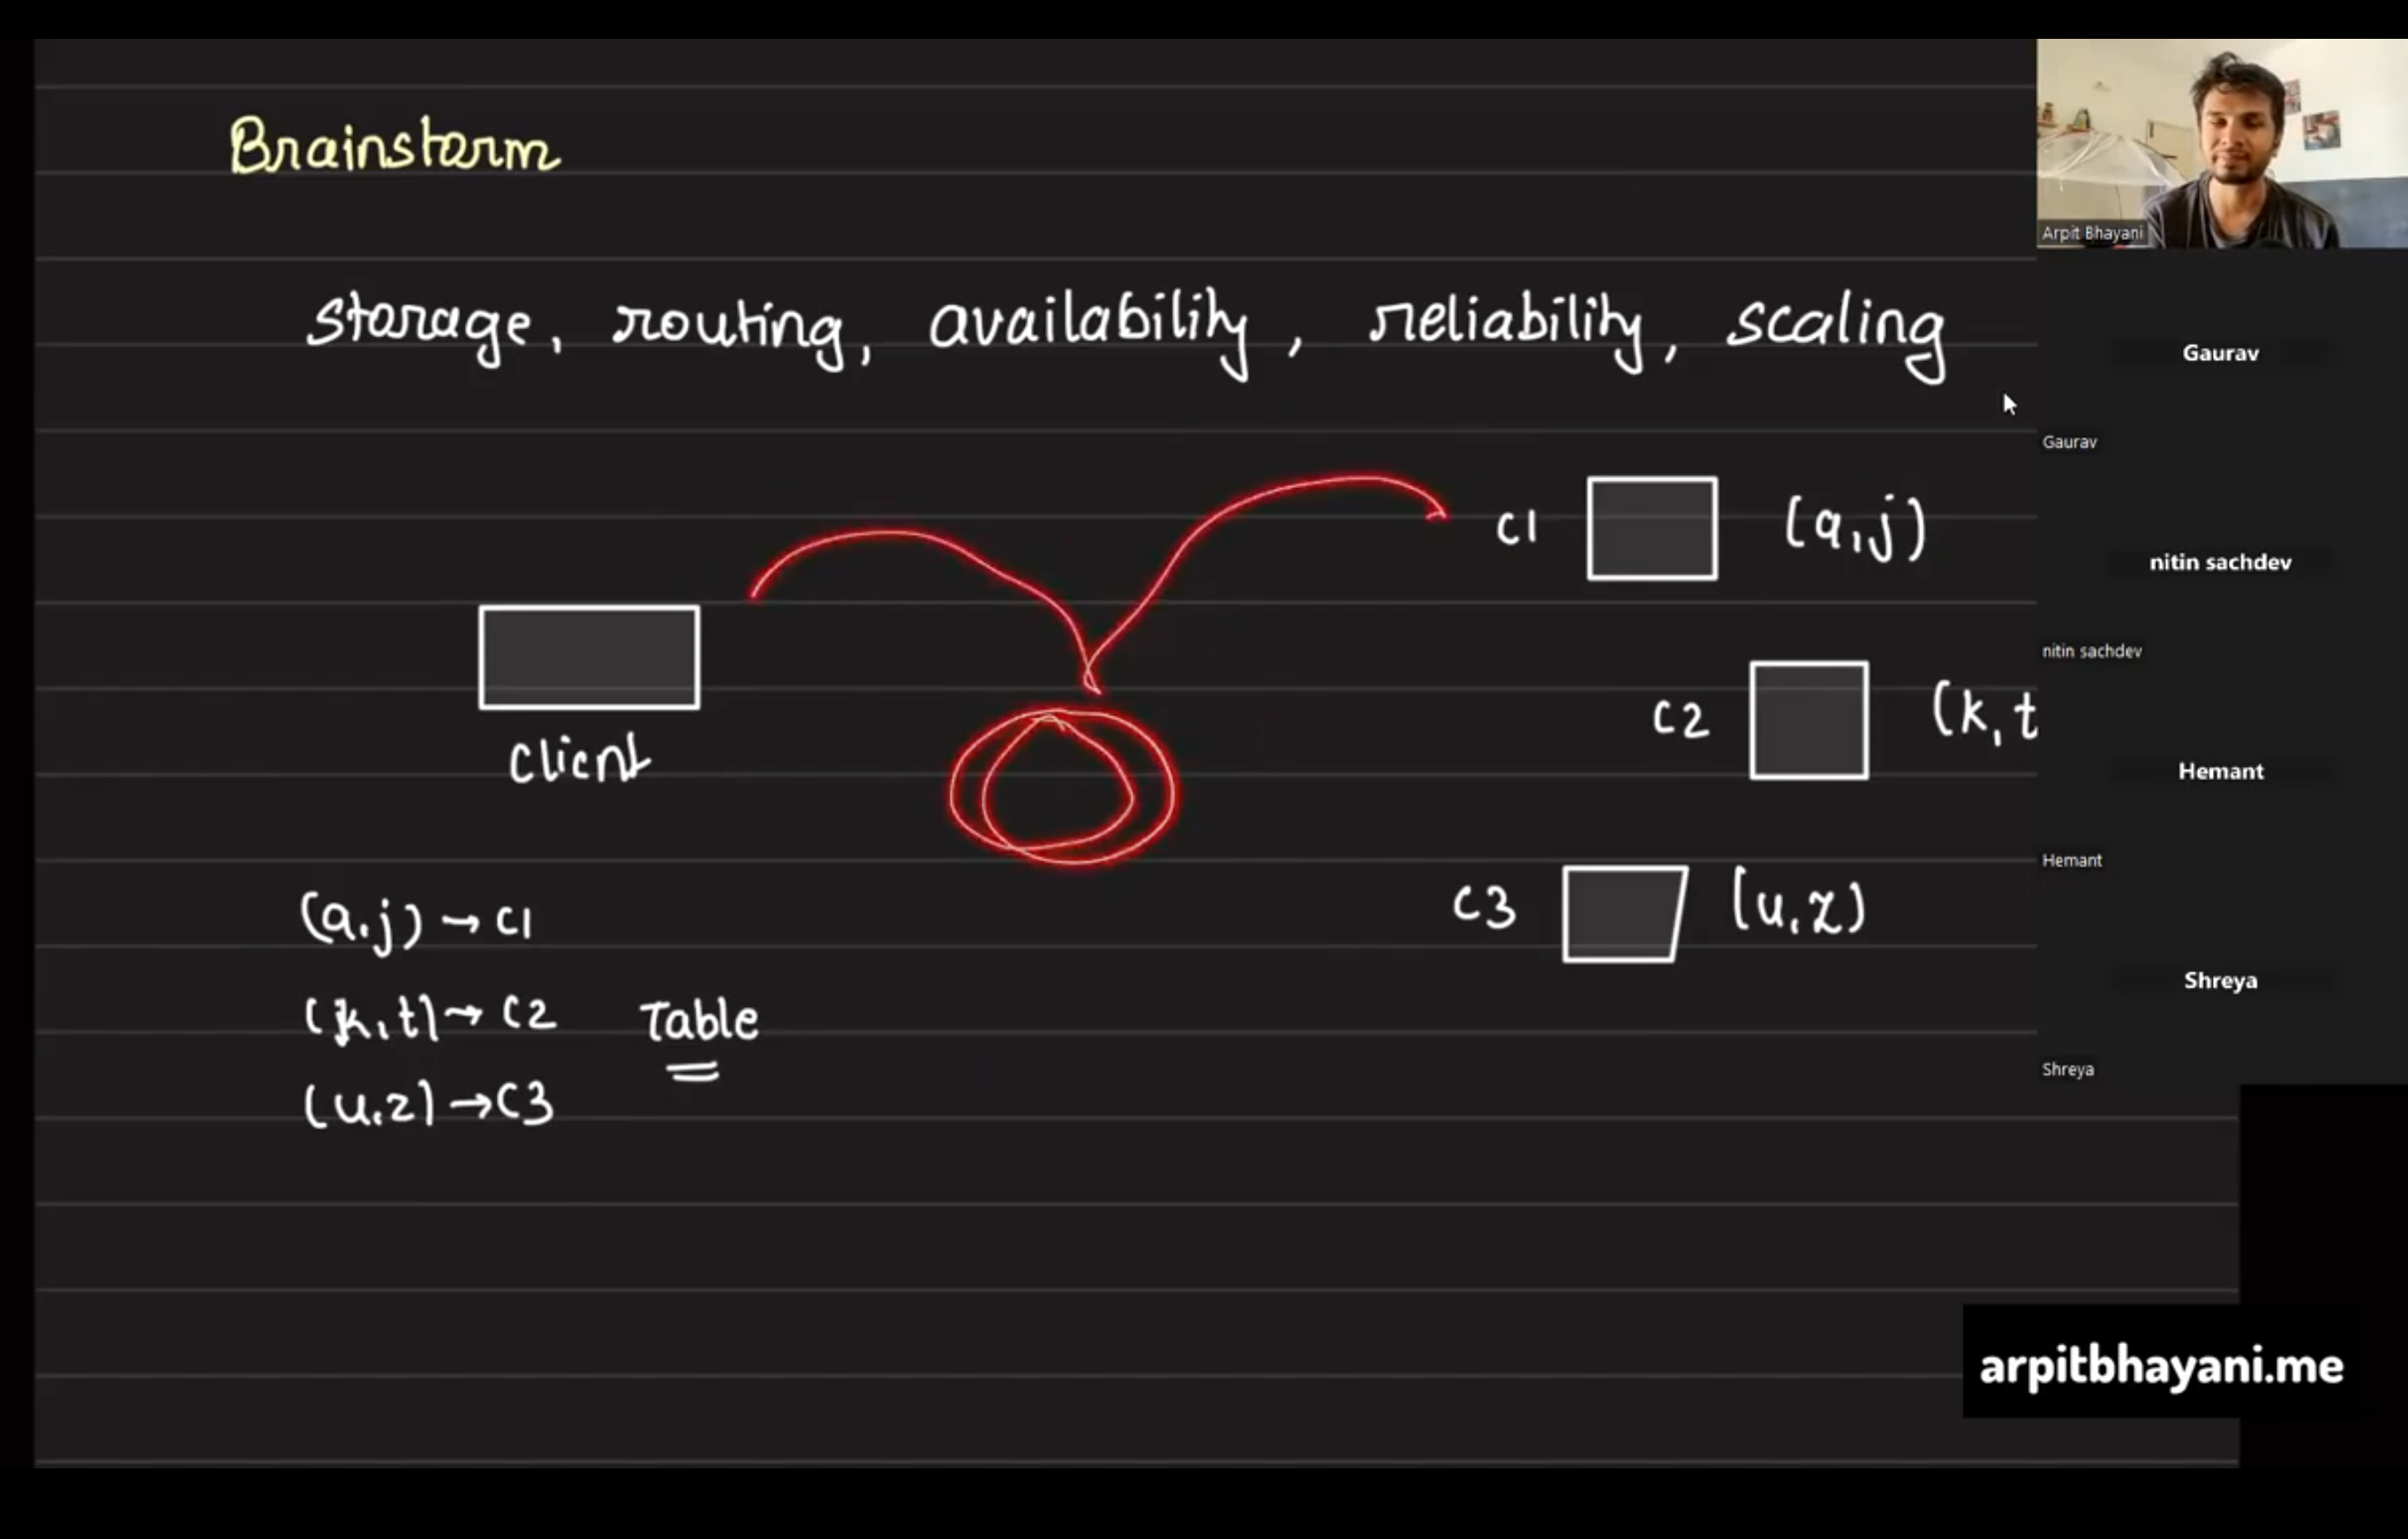 Brainstorm
storage, routing, availability, reliability, scaling
C1 (a,j)
C2 (k,t
client
C3 (u,z)
(a,j) → C1
(k,t) → C2 Table
(u,z) → C3
Arpit Bhayani
Gaurav
Gaurav
nitin sachdev
nitin sachdev
Hemant
Hemant
Shreya
Shreya
arpitbhayani.me